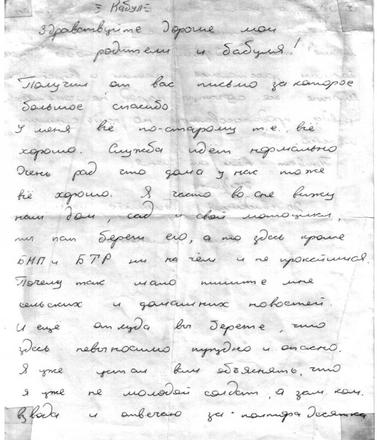 г Кабул
Здравствуйте дорогие мои
родители и бабуля!
Получил от вас письмо за которое
большое спасибо.
У меня всё по-старому т.е. всё
хорошо. Служба идет нормально
Очень рад что дома у нас тоже
всё хорошо. Я часто во сне вижу
наш дом, сад и свой мотоцикл,
ты пап береги его, а то здесь кроме
БМП и БТР ни на чем и не прокатишься.
Почему так мало пишите мне
сельских и домашних новостей.
И еще откуда вы берете, что
здесь невыносимо трудно и опасно.
Я уже устал вам объяснять, что
я уже не молодой солдат, а зам. ком.
взвода и отвечаю за полтора десятка